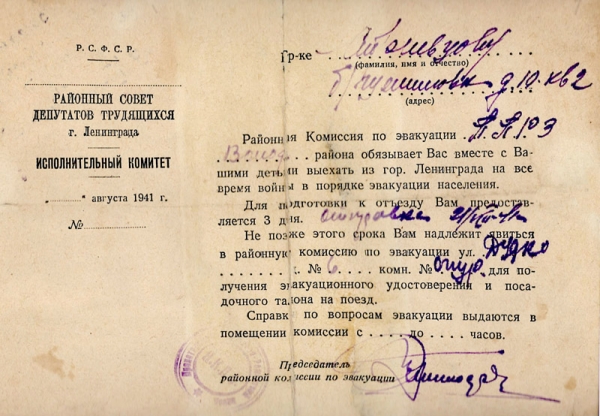 Р. С. Ф. С. Р.
РАЙОННЫЙ СОВЕТ
ДЕПУТАТОВ ТРУДЯЩИХСЯ
г. Ленинграда
ИСПОЛНИТЕЛЬНЫЙ КОМИТЕТ
„ “ августа 1941 г.
№
Гр-ке
(фамилия, имя и отчество)
д 10 кв 2
(адрес)
Районная Комиссия по эвакуации
района обязывает Вас вместе с Ва-
шими детьми выехать из гор. Ленинграда на все
время войны в порядке эвакуации населения.
Для подготовки к отъезду Вам предостав-
ляется 3 дня.
Не позже этого срока Вам надлежит явиться
в районную комиссию по эвакуации ул.
№ 6 комн. № для по-
лучения эвакуационного удостоверения и поса-
дочного талона на поезд.
Справки по вопросам эвакуации выдаются в
помещении комиссии с . . . . до . . . . часов.
Председатель
районной комиссии по эвакуации